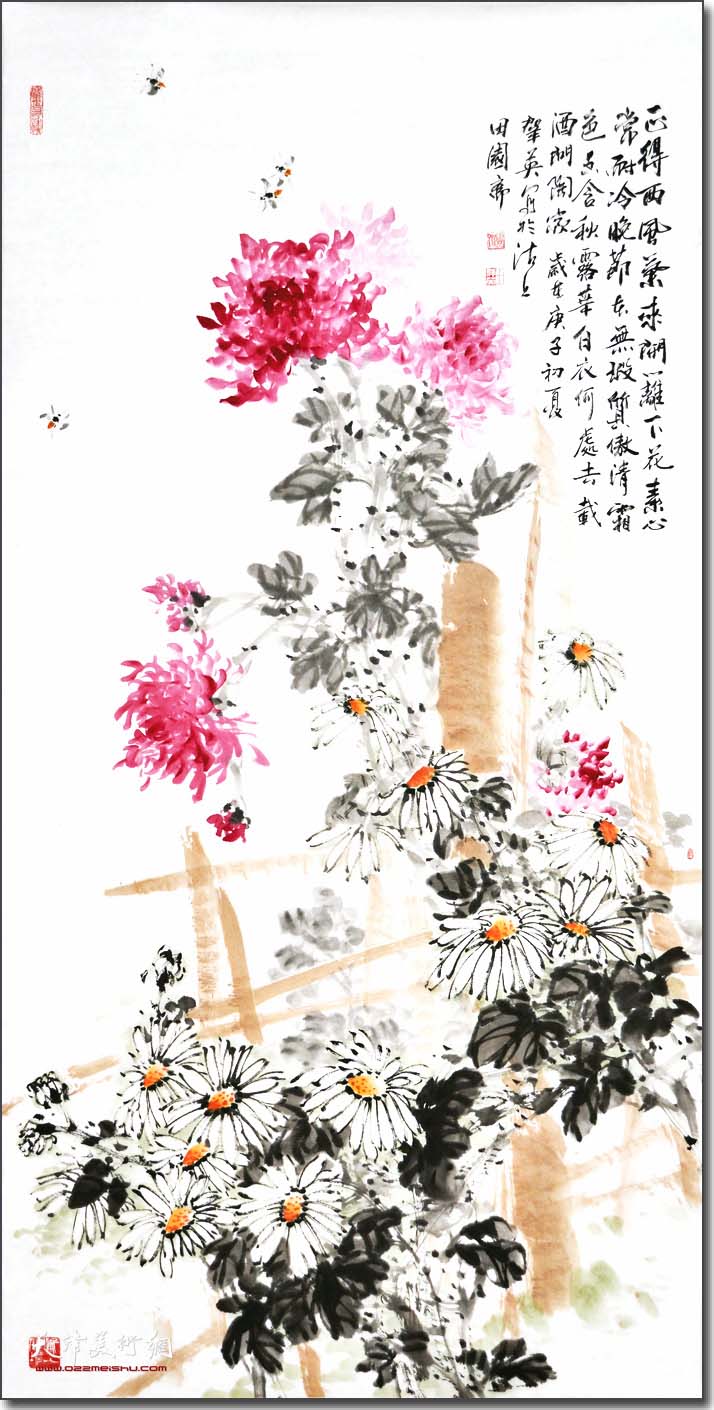 正得西風気未開籬下花素心
常耐冷晚節本無瑕質傲清霜
色香含秋露華白衣何處去載
酒問陶家歲在庚子初夏
翠英寫於沽上
田園齋
天津美術網
www.022meishu.com